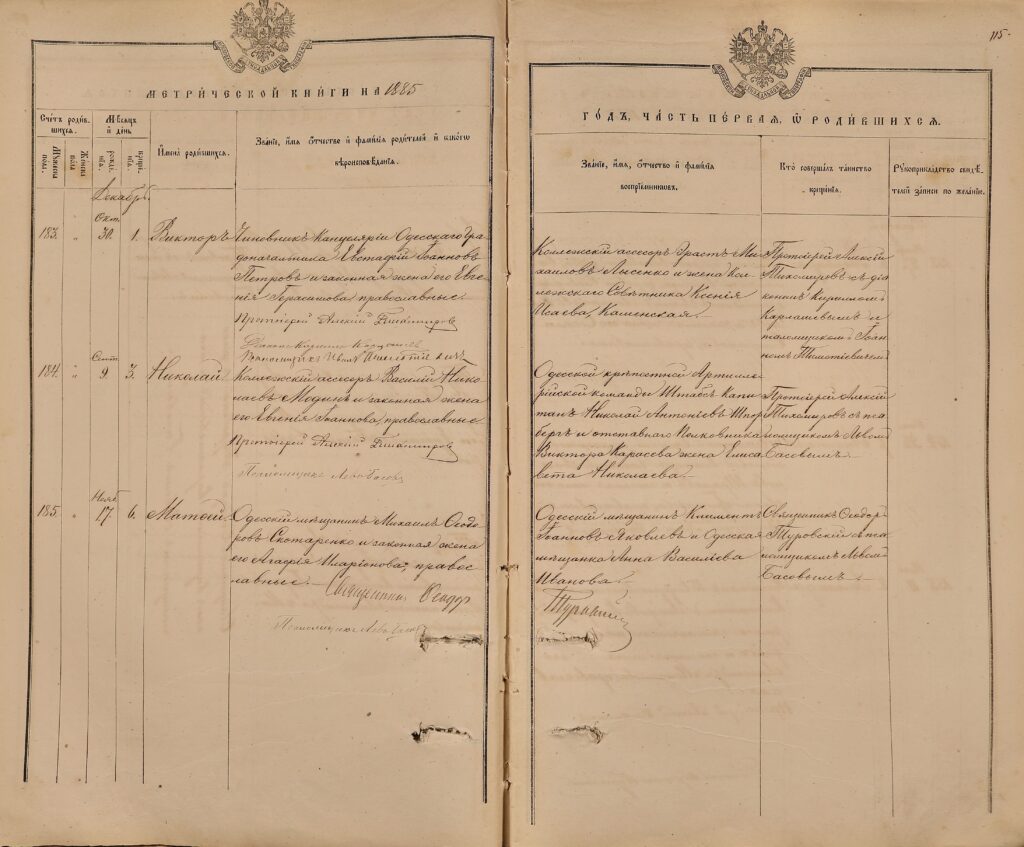 115.
МЕТРИЧЕСКОЙ КНИГИ НА 1885
ГОДЪ, ЧАСТЬ ПЕРВАЯ, Ѡ РОДИВШИХСЯ.
Счетъ родив-
шихся.
Мѣсяцъ
и день
Имена родившихся.
Званіе, имя, отчество и фамилія родителей и какого
вѣроисповѣданія.
Мужеска
пола.
Женска
пола
рожде-
нія.
креще-
нія.
Званіе, имя, отчество и фамилія
воспріемниковъ.
Кто совершалъ таинство
крещенія.
Рукоприкладство свидѣ-
телей записи по желанію.
Декабрь.
Окт.
183. " 30. 1. Викторъ
Чиновникъ Канцеляріи Одесскаго Гра-
доначальника Евстафій Іоанновъ
Петровъ и законная жена его Евге-
нія Герасимова, православные.
Протоіерей Алексій Тихомировъ
Діаконъ Кириллъ Карташевъ
Псаломщикъ Іоаннъ
Коллежскій ассесоръ Эрастъ Ми-
хаиловъ Лысенко и жена Кол-
лежскаго Совѣтника Ксенія
Исаева Каменская.
Протоіерей Алексій
Тихомировъ съ діа-
кономъ Кирилломъ
Карташевымъ и
псаломщикомъ Іоан-
номъ
Сент.
184. " 9. 3. Николай
Коллежскій ассесоръ Василій Нико-
лаевъ и законная жена
его Евгенія Іоаннова, православные.
Протоіерей Алексій Тихомировъ
Псаломщикъ Левъ Басовъ
Одесской крѣпостной Артилле-
рійской команды Штабсъ Капи-
танъ Николай Антоніевъ
и отставнаго Полковника
Виктора Карасева жена Елиса-
вета Николаева.
Протоіерей Алексій
Тихомировъ съ пса-
ломщикомъ Львомъ
Басовымъ.
Нояб.
185. " 17. 6. Матѳей
Одесскій мѣщанинъ Михаилъ Ѳеодо-
ровъ Скотаренко и законная жена
его Агафія Иларіонова, правос-
лавные.
Священникъ Ѳеодоръ
Туровскій
Псаломщикъ Левъ Басовъ
Одесскій мѣщанинъ Климентъ
Іоанновъ Яковлевъ и Одесская
мѣщанка Анна Васильева
Иванова.
Священникъ Ѳеодоръ
Туровскій съ пса-
ломщикомъ Львомъ
Басовымъ.